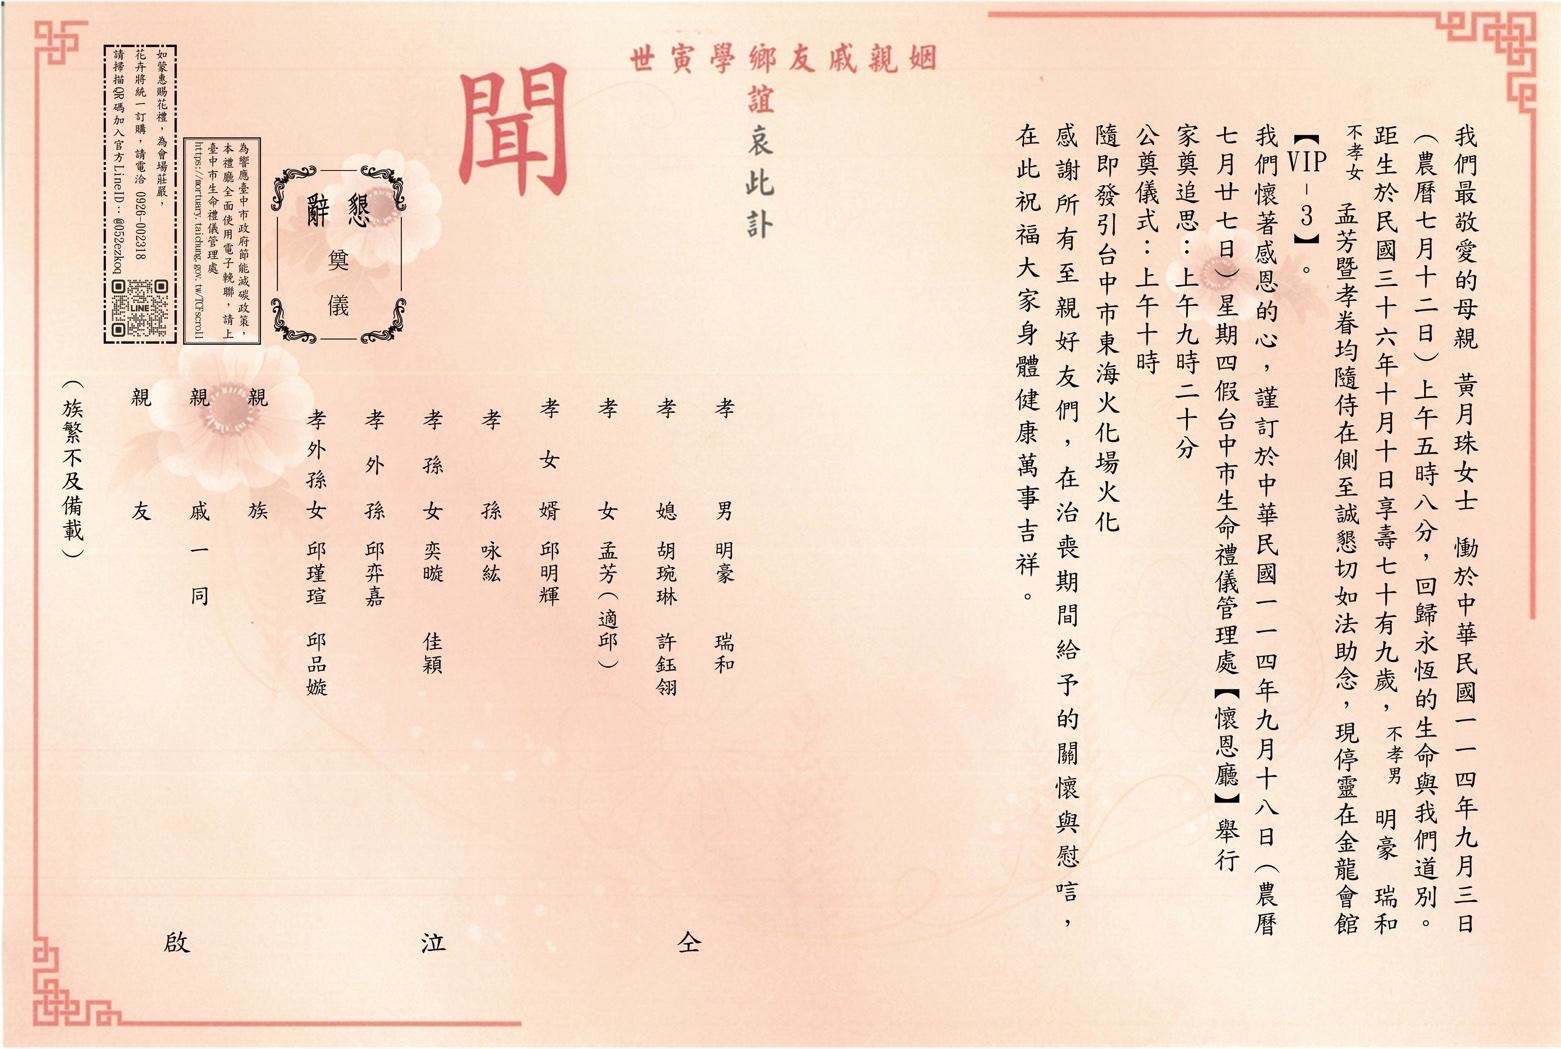 我們最敬愛的母親 黃月珠女士 慟於中華民國一一四年九月三日
(農曆七月十二日)上午五時八分，回歸永恆的生命與我們道別。
距生於民國三十六年十月十日享壽七十有九歲，不孝男 明豪 瑞和
不孝女 孟芳暨孝眷均隨侍在側至誠懇切如法助念，現停靈在金龍會館
【VIP-3】。
我們懷著感恩的心，謹訂於中華民國一一四年九月十八日(農曆
七月廿七日)星期四假台中市生命禮儀管理處【懷恩廳】舉行
家奠追思：上午九時二十分
公奠儀式：上午十時
隨即發引台中市東海火化場火化
感謝所有至親好友們，在治喪期間給予的關懷與慰唁，
在此祝福大家身體健康萬事吉祥。
世寅學鄉友戚親姻
誼哀此訃
聞
孝男 明豪 瑞和
孝媳 胡琬琳 許鈺翎
孝女 孟芳(適邱)
孝女婿 邱明輝
孝孫 咏紘
孝孫女 奕暶 佳穎
孝外孫 邱弈嘉
孝外孫女 邱瑾瑄 邱品嫙
親族
親戚一同
親友
(族繁不及備載)
仝 泣 啟
懇辭
奠儀
為響應臺中市政府節能減碳政策，
本禮廳全面使用電子輓聯，請上
臺中市生命禮儀管理處
https://mortuary.taichung.gov.tw/TCFscroll
如蒙惠賜花禮，為會場莊嚴，
花卉將統一訂購，請電洽 0926-002318
請掃描QR碼加入官方LineID：@052ezkoq
LINE